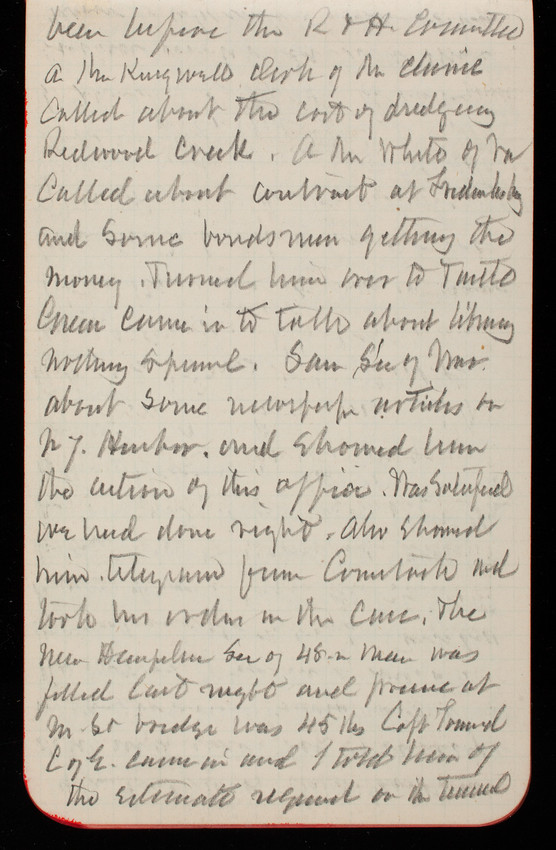 been before the R & H. Committee
a Mr Kingwell clerk of the
Called about the cost of dredging
Redwood Creek. A Mr White of Va
Called about contract at Fredericksburg
and some bondsmen getting the
money. Turned him over to Tuttle
Green came in to talk about library
nothing special. Saw Sec of War
about some newspaper articles on
N Y. Harbor. and showed him
the action of this office. Was satisfied
we had done right. Also showed
him telegram from Comstock and
took his order in the case. The
New Hampshire Ave of 48 in main was
filled last night and pressure at
M St bridge was 45 lbs Capt
C of E. came in and I told him of
the estimate required on the tunnel